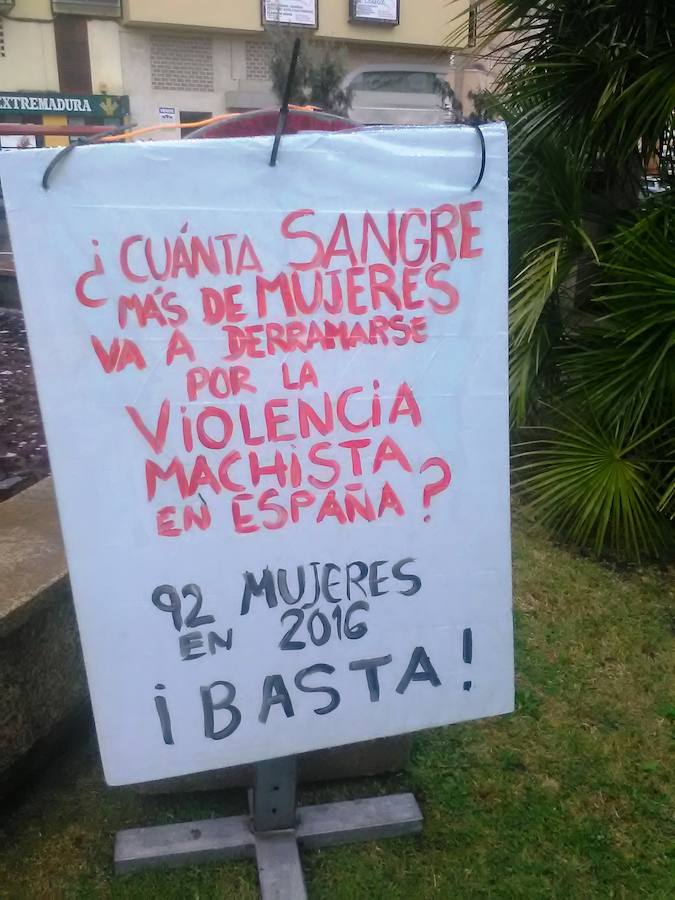 EXTREMADURA
¿CUÁNTA SANGRE
MÁS DE MUJERES
VA A DERRAMARSE
POR LA
VIOLENCIA
MACHISTA
EN ESPAÑA?
92 MUJERES
EN 2016
¡BASTA!